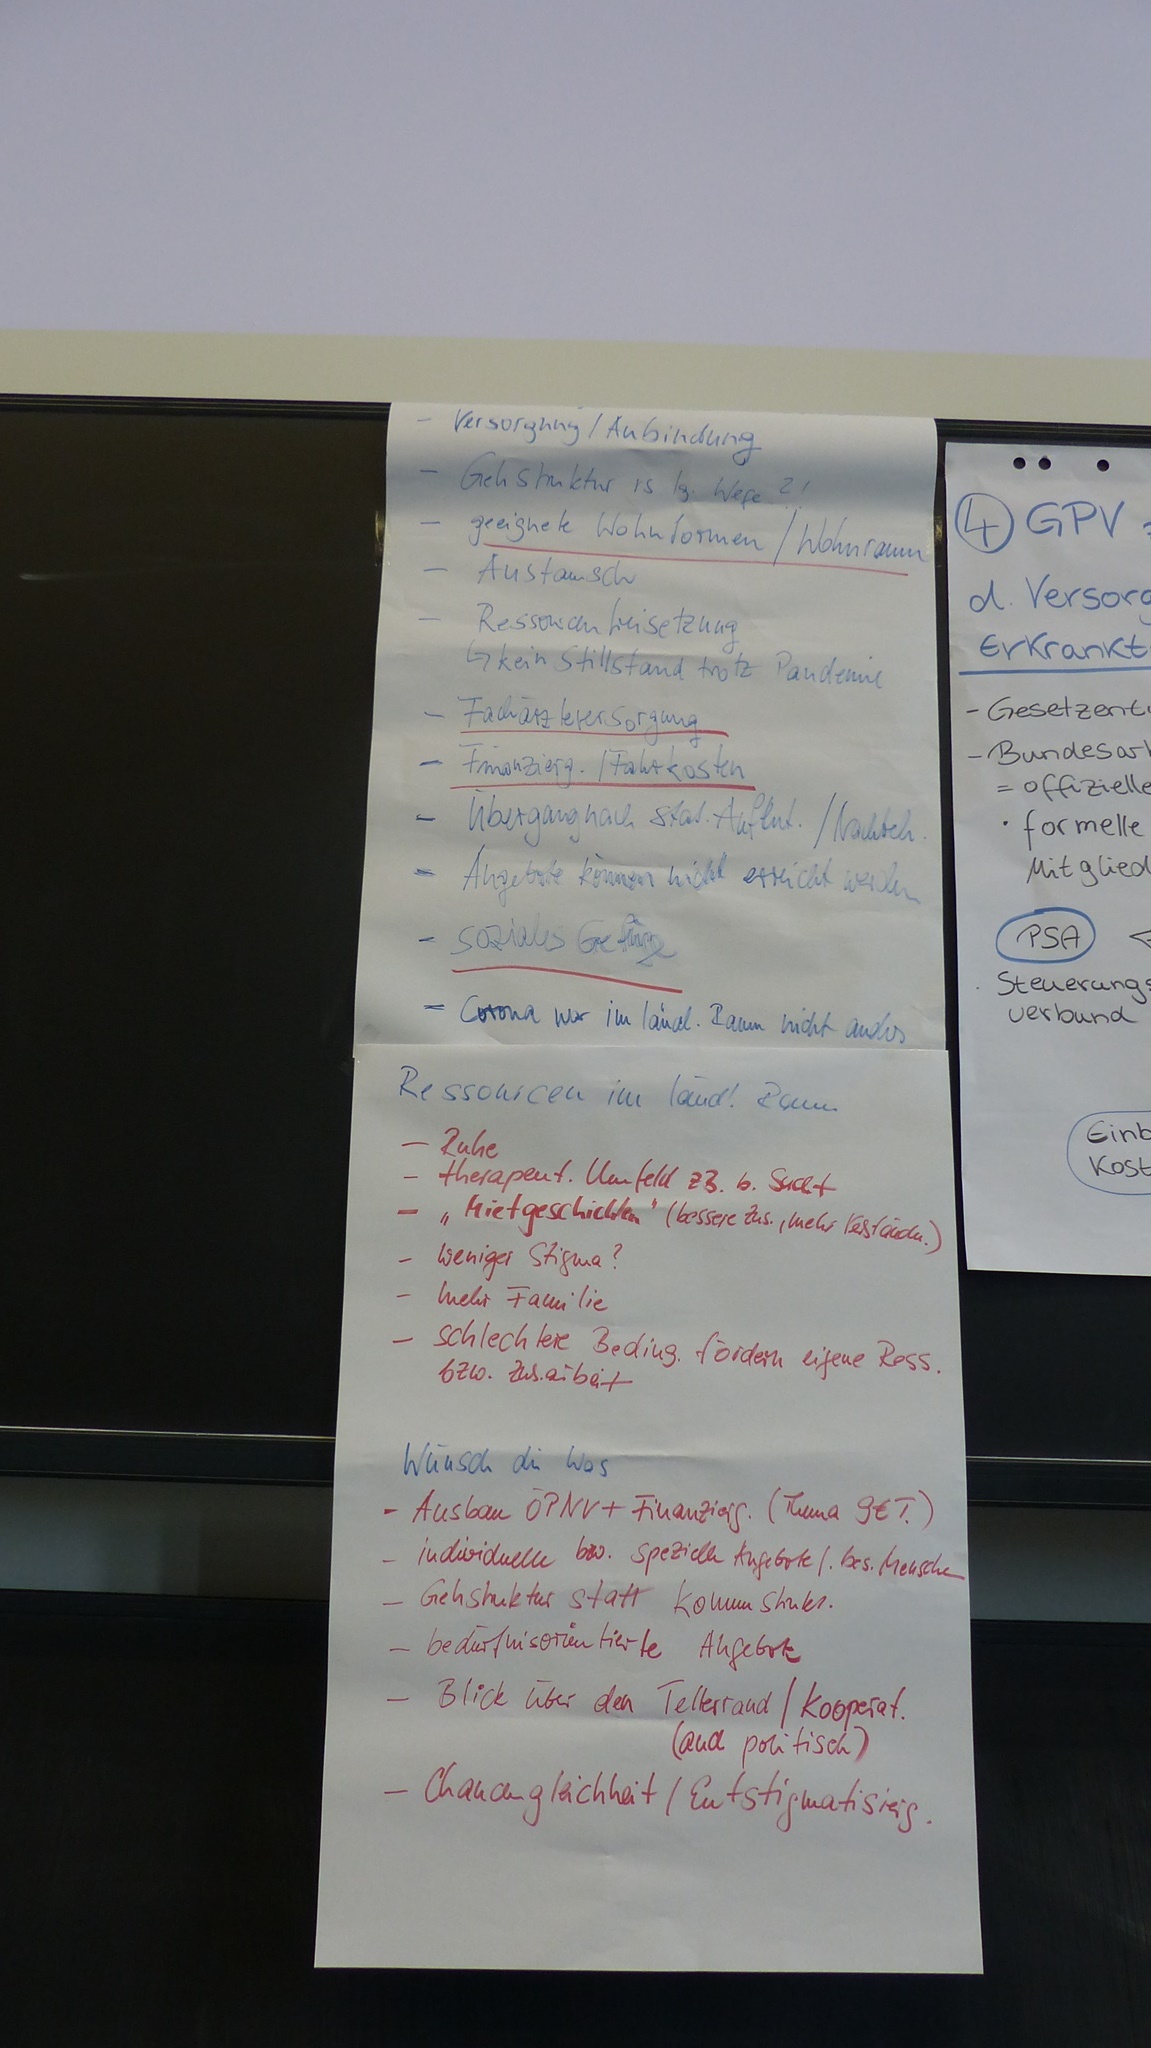 - Versorgung/Anbindung
- Gehstruktur lg. Wege ?!
- geeignete Wohnformen / Wohnraum
- Austausch
- Ressourcenfreisetzung
↳ kein Stillstand trotz Pandemie
- Fachärzteversorgung
- Finanzierg. /Fahrkosten
- Übergang nach stat. /Nachbeh.
- Angebote können nicht erreicht werden
- soziales Gefüge
- Corona war im ländl. Raum nicht anders
Ressourcen im ländl. Raum
- Ruhe
- therapeut. Umfeld z.B. b. Sucht
- „Mietgeschichten" (bessere Zus., mehr Verständn.)
- weniger Stigma?
- mehr Familie
- schlechtere Beding. fördern eigene Ress.
bzw. Zus.arbeit
Wünsch dir Was
- Ausbau ÖPNV + Finanzierg. (Thema 9€ T.)
- individuelle bzw. spezielle Angebote f. bes. Menschen
- Gehstruktur statt Kommstrukt.
- bedürfnisorientierte Angebote
- Blick über den Tellerrand / Kooperat.
(auch politisch)
- Chancengleichheit / Entstigmatisierg.
④ GPV
d. Versorg
Erkrankt
- Gesetzent
- Bundesar
= offizielle
· formelle
Mitglied
PSA
· Steuerungs
verbund
Einb
Kost